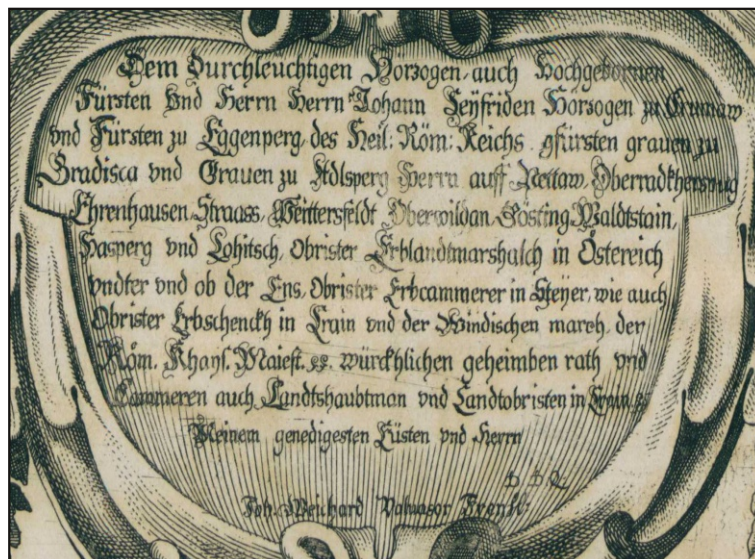 Dem Durchleuchtigen Horzogen, auch Hochgebornen
Fürsten Vnd Herrn Herrn Johann Seyfriden Horzogen zu Crumaw
vnd Fürsten zu Eggenperg, des Heil: Röm: Reichs gfürsten grauen zu
Gradisca vnd Grauen zu Adlsperg Herrn auff Oberradkherspurg
Ehrenhausen, Straass, Weittersfeldt Oberwildan, Gösting, Waldtstain,
Hasperg vnd Lohitsch, Obrister Erblandtmarshalch in Östereich
vndter vnd ob der Ens, Obrister Erbcammerer in Steyer, wie auch
Obrister Erbschenckh in Crain vnd der Windischen march, der
Röm. Khayl. Maiest. würckhlichen geheimben rath vnd
Cammeren auch Landtshaubtman vnd Landtobristen in Crain
Meinem genedigesten Füsten vnd Herrn
D D Q
Joh. Weichard Valuasor